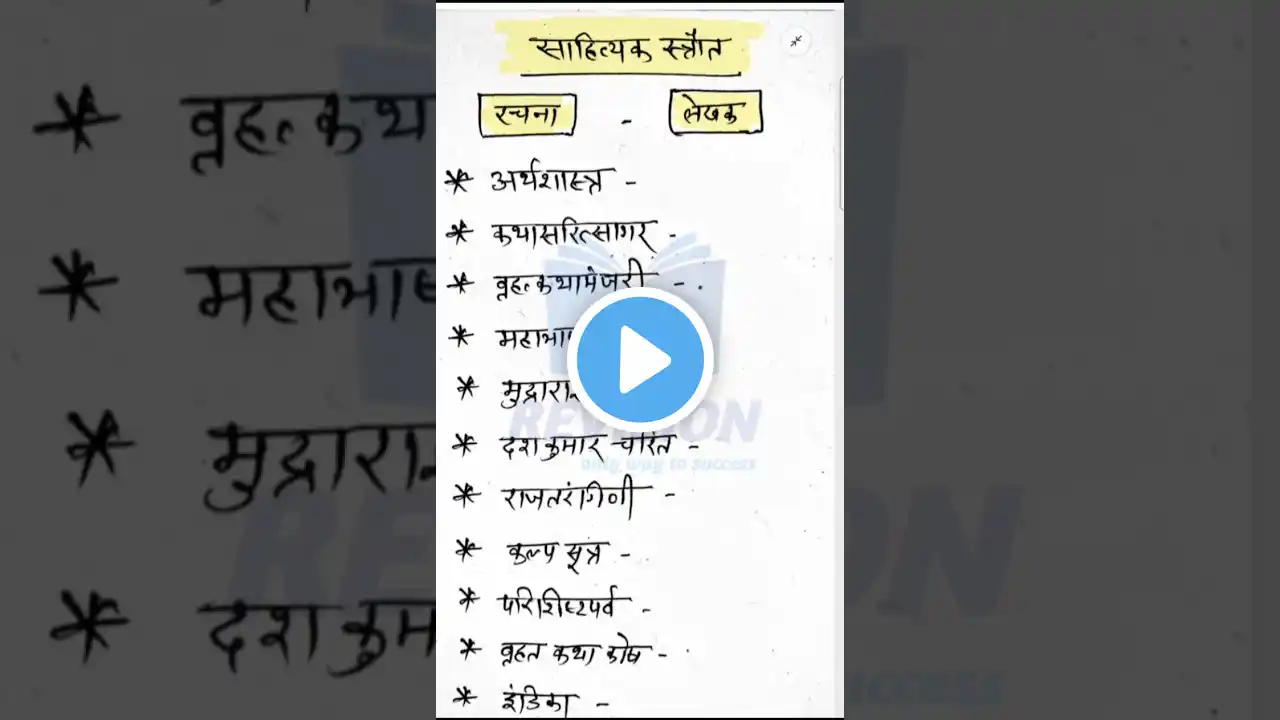 साहित्यक स्त्रौत
रचना - लेखक
* अर्थशास्त्र -
* कथासरित्सागर -
* वृहत्कथामंजरी -
* महाभा
* मुद्रारा
* दशकुमार चरित -
* राजतरंगिणी -
* कल्प सूत्र -
* परिशिष्टपर्व -
* वृहत कथा कोष -
* इंडिका -
REVISION
only way to success